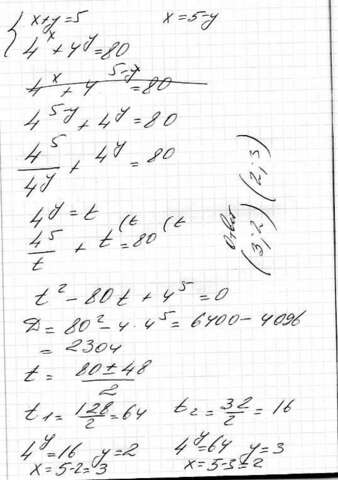 { x+y=5 x=5-y
4^x+4^y=80
4^x+4^{5-x}=80
4^{5-y}+4^y=80
4^5/4^y + 4^y = 80
4^y = t
4^5/t + t = 80 (t (t
t^2 - 80t + 4^5 = 0
D = 80^2 - 4·4^5 = 6400 - 4096
= 2304
t = (80±48)/2
t_1 = 128/2 = 64 t_2 = 32/2 = 16
4^y=16 y=2 4^y=64 y=3
x=5-2=3 x=5-3=2
(3;2) (2;3)